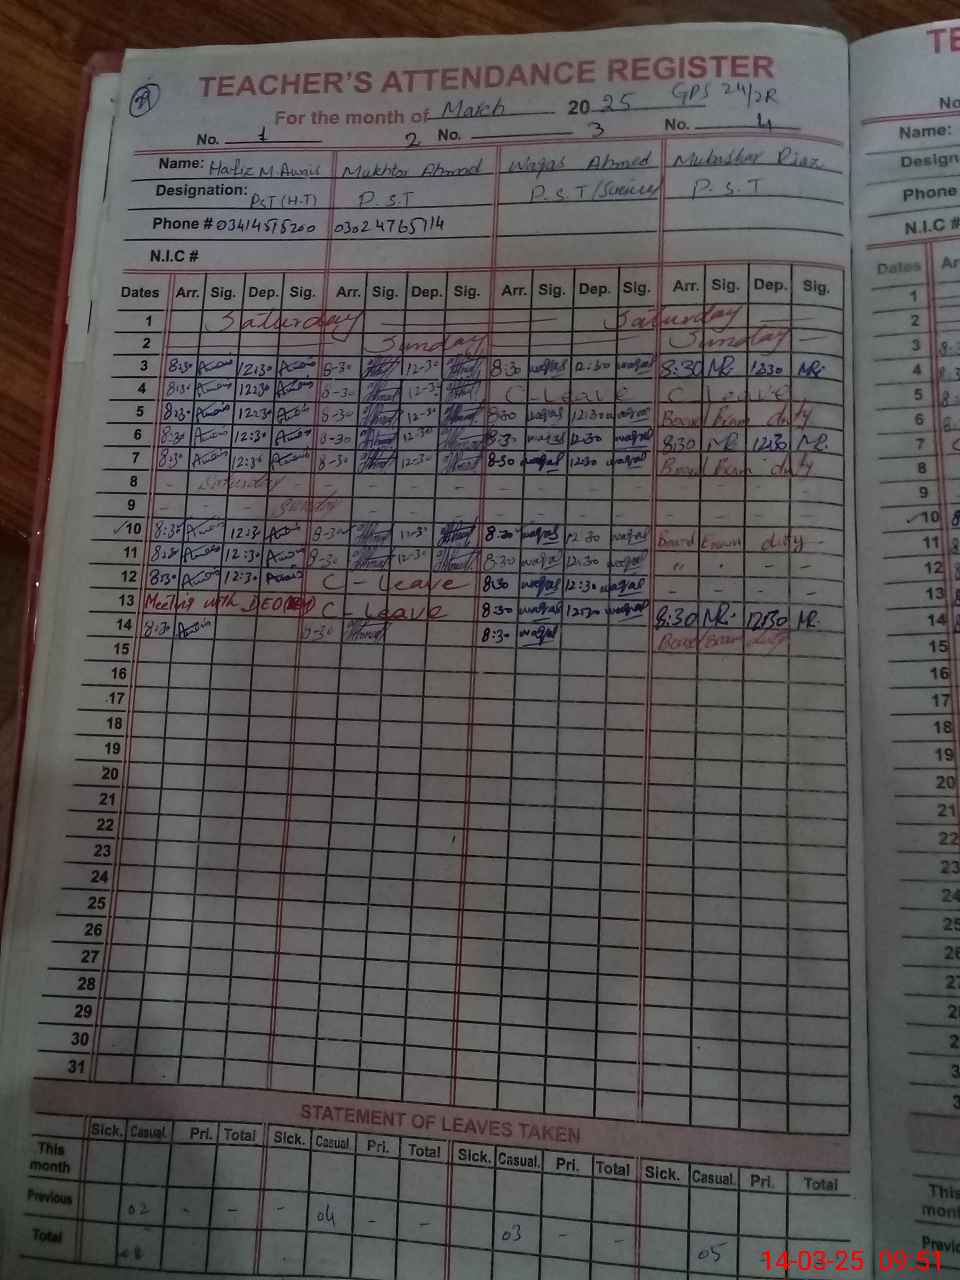 TEACHER'S ATTENDANCE REGISTER
For the month of March 2025 GPS 24/2R
No. 1 2 No. 3 No. 4
Name: Hafiz M. Awais Mukhtar Ahmad Waqas Ahmed Mubashar Riaz
Designation: PST (H-T) P.S.T P.S.T/ P.S.T
Phone # 03414515200 03024765114
N.I.C #
Dates Arr. Sig. Dep. Sig. Arr. Sig. Dep. Sig. Arr. Sig. Dep. Sig. Arr. Sig. Dep. Sig.
1 Saturday Saturday
2 Sunday Sunday
3 8:30 Awais 12:30 Awais 8-30 Ahmad 12-30 Ahmad 8:30 waqas 12:30 waqas 8:30 MR. 1230 MR.
4 8:30 Awais 12:30 Awais 8-30 Ahmad 12-30 Ahmad C-Leave C Leave
5 8:30 Awais 12:30 Awais 8-30 Ahmad 12-30 Ahmad 8:30 waqas 12:30 waqas Board Exam duty
6 8:30 Awais 12:30 Awais 8-30 Ahmad 12-30 Ahmad 8:30 waqas 12:30 waqas 8:30 MR. 12:30 MR.
7 8:30 Awais 12:30 Awais 8-30 Ahmad 12-30 Ahmad 8:30 waqas 12:30 waqas Board Exam duty
8 - Saturday - - - - - - - - - -
9 - - - Sunday - - - - - - - -
10 8:30 Awais 12:30 Awais 8-30 Ahmad 12-30 Ahmad 8:30 waqas 12:30 waqas Board Exam duty
11 8:30 Awais 12:30 Awais 8-30 Ahmad 12-30 Ahmad 8:30 waqas 12:30 waqas " - - -
12 8:30 Awais 12:30 Awais C - Leave 8:30 waqas 12:30 waqas - - - -
13 Meeting with DEO C - Leave 8:30 waqas 12:30 waqas 8:30 MR. 12:30 MR.
14 8:30 Awais 8-30 Ahmad 8:30 waqas Board Exam duty
15
16
17
18
19
20
21
22
23
24
25
26
27
28
29
30
31
STATEMENT OF LEAVES TAKEN
Sick. Casual. Pri. Total Sick. Casual Pri. Total Sick. Casual. Pri. Total Sick. Casual. Pri. Total
This month
Previous 02 - - - 04 - - 03 - - 05
Total
TE
No
Name:
Design
Phone
N.I.C #
Dates Ar
1
2
3
4
5
6
7
8
9
10
11
12
13
14
15
16
17
18
19
20
21
22
23
24
25
26
27
2
2
3
3
This
mont
Previo
14-03-25 09:51